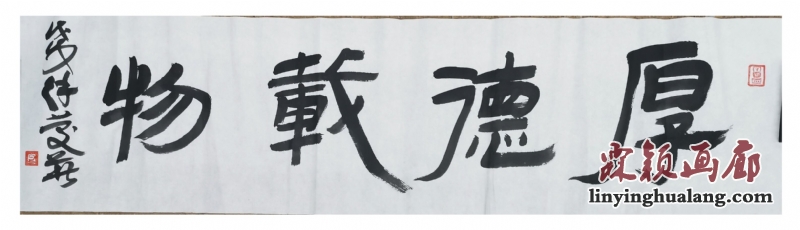 厚德載物
霖颖画廊
linyinghualang.com